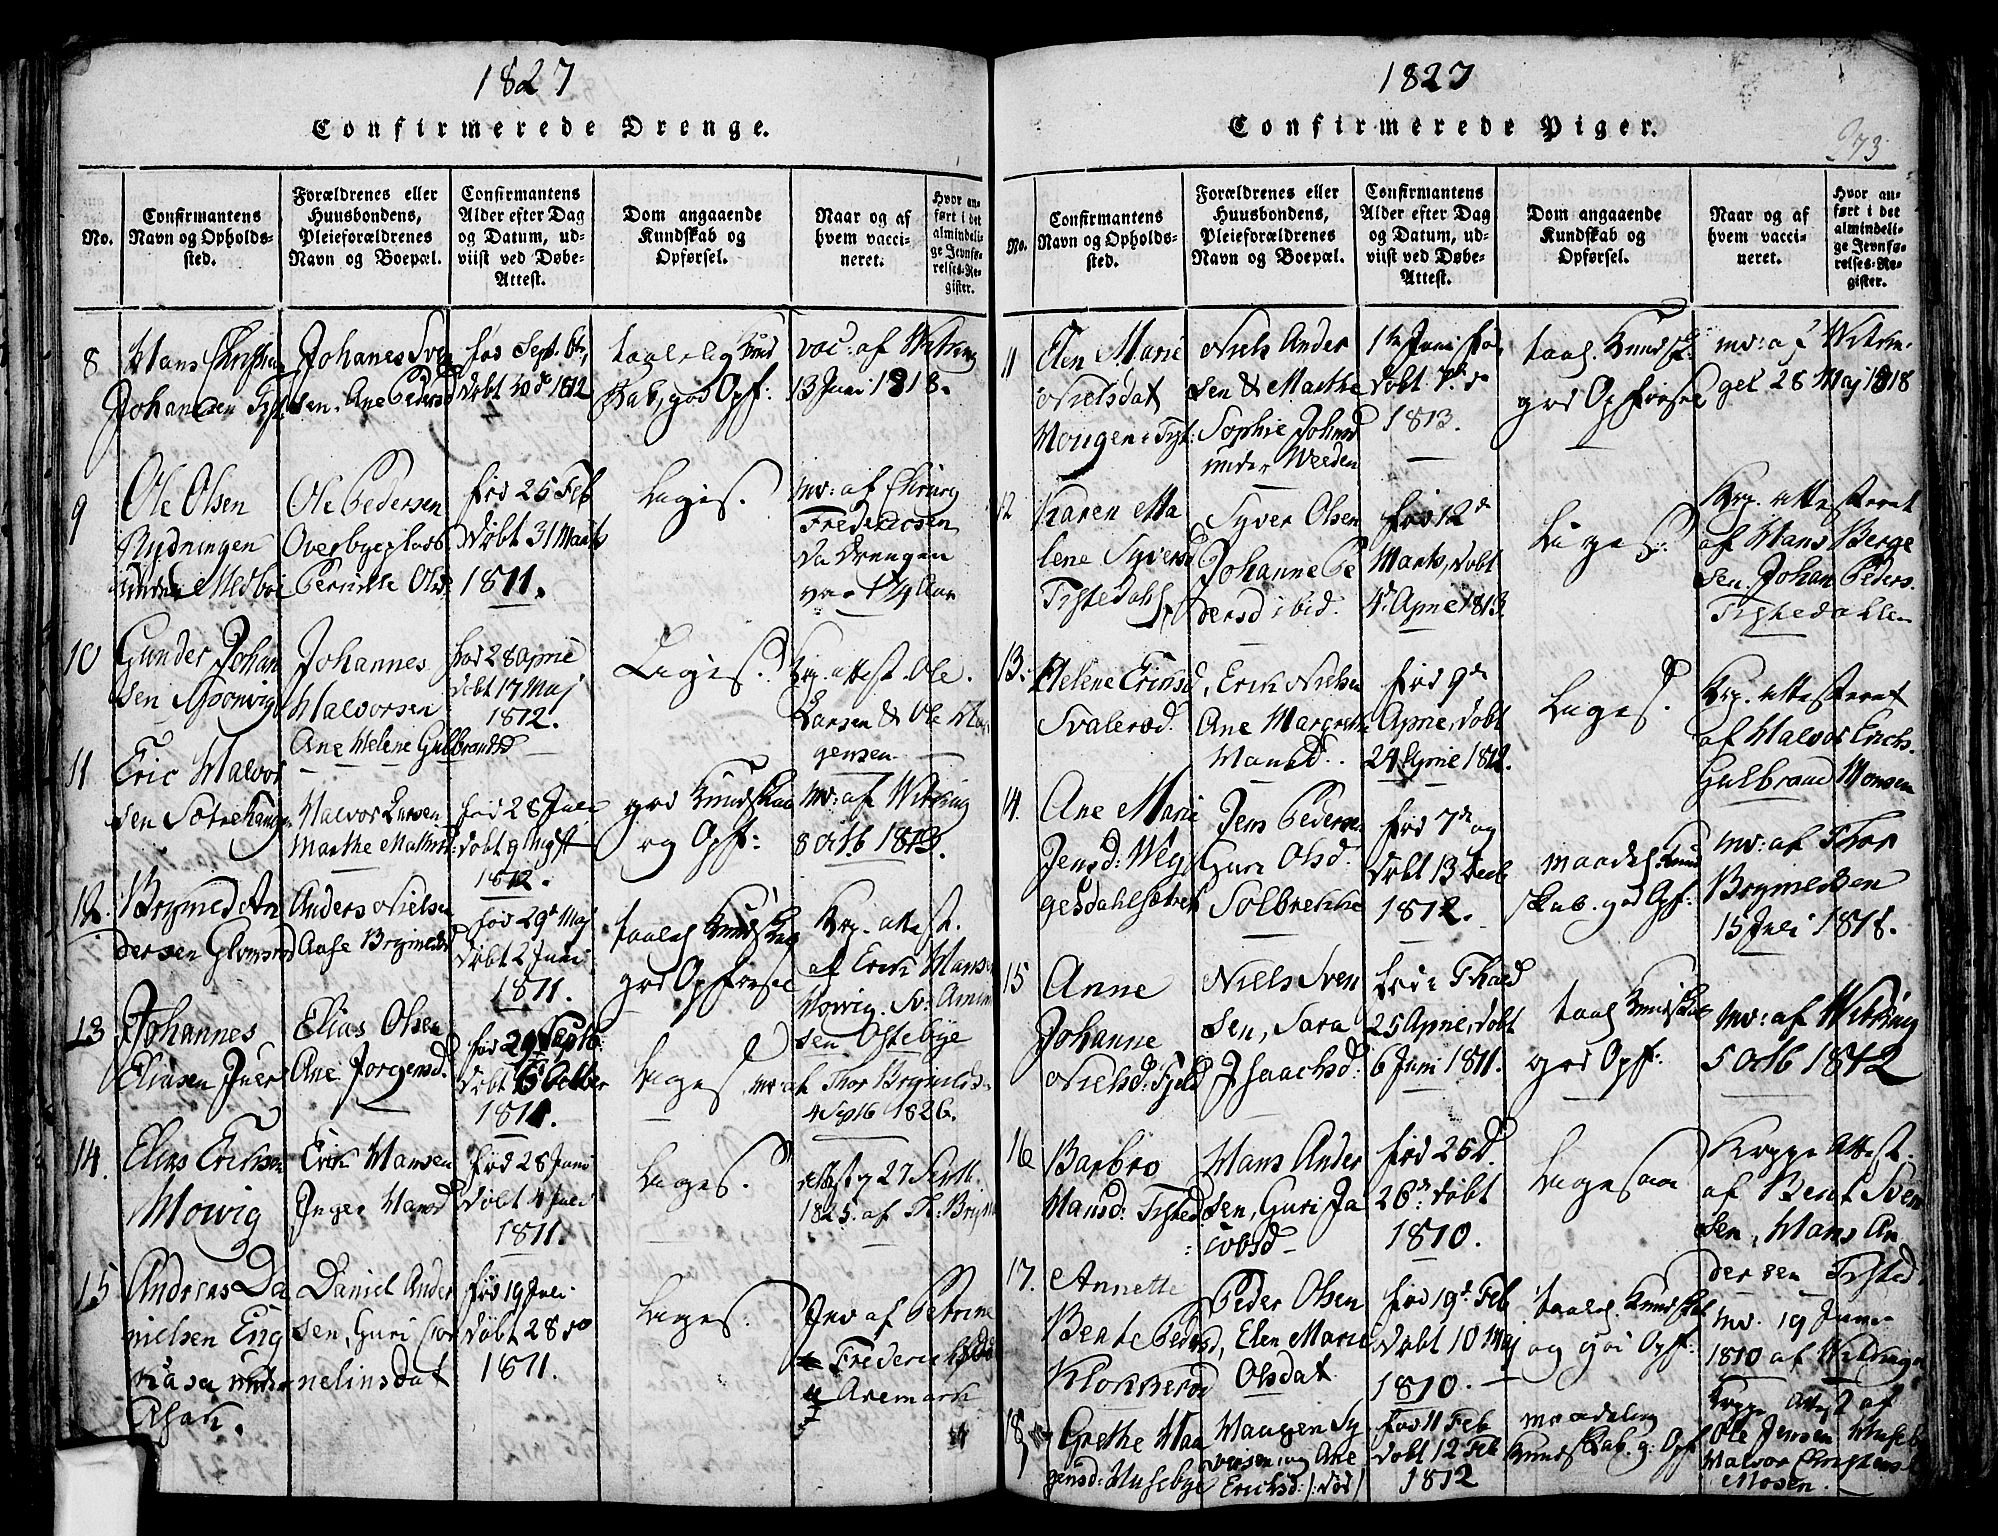 1827
Confirmerede Drenge.
No.
Confirmantens
Navn og Opholds-
sted.
Forældrenes eller
Huusbondens,
Pleieforældrenes
Navn og Boepæl.
Confirmantens
Alder efter Dag
og Datum, ud-
viist ved Døbe-
Attest.
Dom angaaende
Kundskab og
Opførsel.
Naar og af
hvem vacci-
neret.
Hvor an-
ført i det
almindeli-
ge Jevnfø-
relses-Re-
gister.
8
Hans Christian
Johansen Tist
Johanes Sven
sen. Ane Pedersd
fød Sept. 6te
Døbt 10de 1812
taalelig Kund
skab, god Opf:
vac: af Wetring
13 Juni 1818.
9
Ole Olsen
Rydningen
under Medboe
Ole Pedersen
Overbyeplads
Pernille Olsd
fød 25 Feb
Døbt 31 Marts
1811.
Ligesd.
mv: af Chirurg
Fredricsen
da Drengen
var 1 1/4 Aar
10
Gunder Johan
sen
Johannes
Halvorsen
Ane Helene Gulbrandsd
fød 28 Aprie
døbt 17 Maj
1812.
Ligesd.
Krp. attest. Ole
Larsen & Ole
gensen
11
Eric Halvor
sen
Halvor Larsen
Marthe Mathis:
fød 28 Juli
Døbt 9 Augst
1812.
god Kundskab
og Opf:
mv: af Wetring
8 Octb 1813.
12.
Brymed An
dersen Glomsrød
Anders Nielsen
Aase Brymedsd
fød 29de Maj
Døbt 2 Juni
1811.
taalel Kundskab
god Opførsel
Krp. attest.
af Erik Hansen
Howig. Sv: Amun
sen Ostebye
13
Johannes
Eliasen
Elias Olsen
Ane Jørgensd.
fød 29 Septb.
Døbt 6 Octber
1811.
Ligesd
mv: af Thor Brymelds:
4 Septb 1826.
14.
Elias Eriksen
Howig
Erik Hansen
Inger Hansd
fød 28 Juni
Døbt 4 Juli
1811.
Ligesd.
27 Septb.
1825. af Th: Bryn
15
Andreas Da
nielsen Eng
under
Asak.
Daniel Ander
sen, Guri Cor
nelinsdat
fød 19 Juli
Døbt 28 do
1811.
Ligesd.
Inv af Petrine
Frederic
Aremark
1827
Confirmerede Piger.
273
No.
Confirmantens
Navn og Opholds-
sted.
Forældrenes eller
Huusbondens,
Pleieforældrenes
Navn og Boepæl.
Confirmantens
Alder efter Dag
og Datum, ud-
viist ved Døbe-
Attest.
Dom angaaende
Kundskab og
Opførsel.
Naar og af
hvem vacci-
neret.
Hvor an-
ført i det
almindeli-
ge Jevnfø-
relses-Re-
gister.
11
Elen Marie
Nielsdat
Hougen: Tist:
Niels Ander
sen & Marthe
Sophie Johnsd
under Weeden
1te Juni fød
Døbt 7de do
1813.
taal. Kundsk:
god Opførsel
mv: af Wetrin
get 28 Maj 1818
12
Karen Ma
lene Syversd
Tistedahl
Syver Olsen
Johanne Pe
dersd ibid.
fød 12de
Marts, døbt
4de Aprie 1813
Ligesd.
Krp. attesteret
af Hans Berge
sen, Johan Peders.
Tistedahlen
13.
Helene Eriksd
Svalerød.
Erik Nielsen
Ane Margrethe
Hansd.
fød 9de
Aprie, døbt
24 Aprie 1812.
Ligesd.
Krp. attesteret
af Halvor Erichs.
Gulbrand Monsen
14.
Ane Marie
Jensd: Weg
gesdahlsætret
Jens Peders
Guri Olsd:
Solbrekke
fød 7de og
døbt 13 Decb
1812.
maadel Kund
skab. god Opf:
mv: af Thor
Brymelsen
15 Juli 1818.
15
Anne
Johanne
Nielsd: Tisted
Niels Sven
sen, Sara
Isaachsd:
25 Aprie, døbt
6 Juni 1811.
taal Kundskab
god Opf:
mv: af Wetring
5 Octb 1812
16
Barbro
Hansd: Tisted:
Hans Ander
sen, Guri Ja
cobsd
fød 25d.
26de døbt
1810.
Ligesaa
Koppe Attest.
af Bent Sven
sen, Hans An
dersen Tisted
17.
Annette
Beate Pedersd
Klokkerød
Peder Olsen
Elen Marie
Olsdat
fød 19de Feb
Døbt 10 Maj
1810.
taalel. Kundskab
og god Opf:
mv. 19 Juni
1810 af Wetring
18
Grethe Haa
gensd: Husebye
Haagen Sy
versen og Ane
Erichsd: /: død /
fød 11 Feb
døbt 12 Feb
1812
maadelig
Kundskab. g: Opf
Koppe Attest af
Ole Jensen Huseby
Halvor Christens
Mosen.